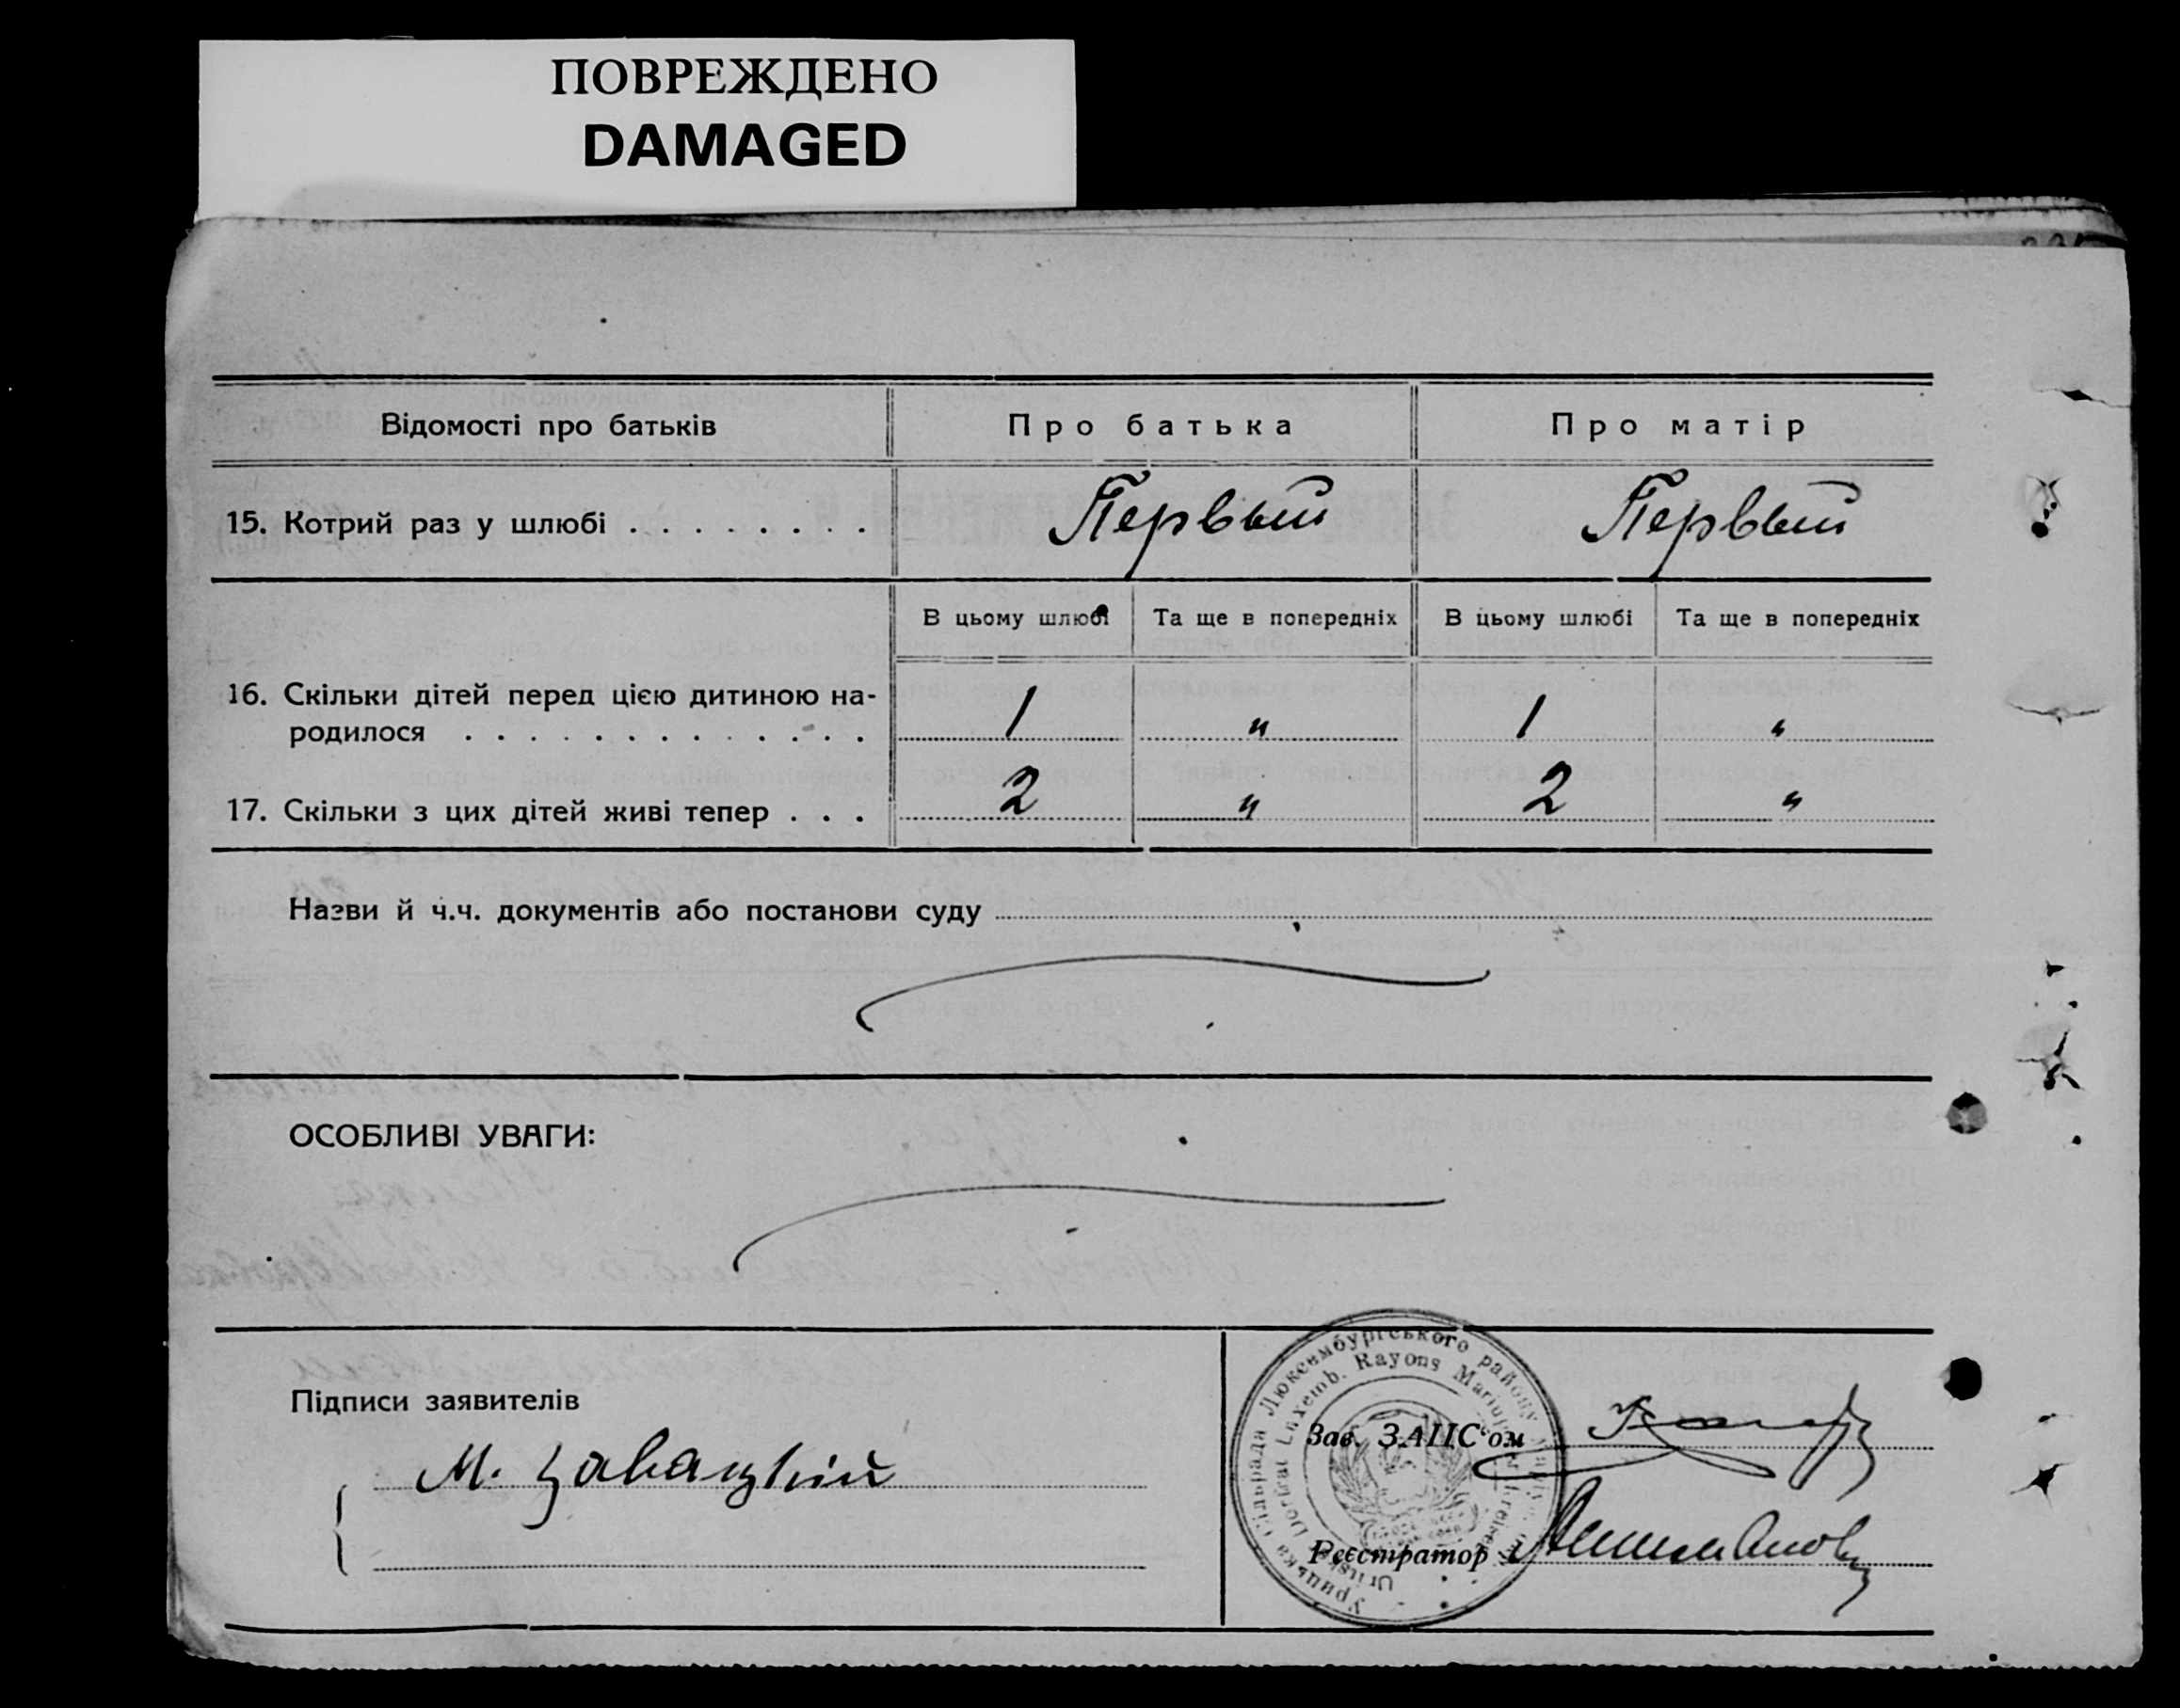 ПОВРЕЖДЕНО
DAMAGED
Відомості про батьків
Про батька
Про матір
15. Котрий раз у шлюбі . . . . . . . . .
Первый
Первый
В цьому шлюбі
Та ще в попередніх
В цьому шлюбі
Та ще в попередніх
16. Скільки дітей перед цією дитиною на-
родилося . . . . . . . . . . . . .
1
"
1
"
17. Скільки з цих дітей живі тепер . . .
2
"
2
"
Назви й ч.ч. документів або постанови суду
ОСОБЛИВІ УВАГИ:
Підписи заявителів
М. Завацкий
Зав. ЗАГС'ом
Реєстратор
Урицька Сільрада Люксембургського району
Dorfrat Luxemb. Rayons